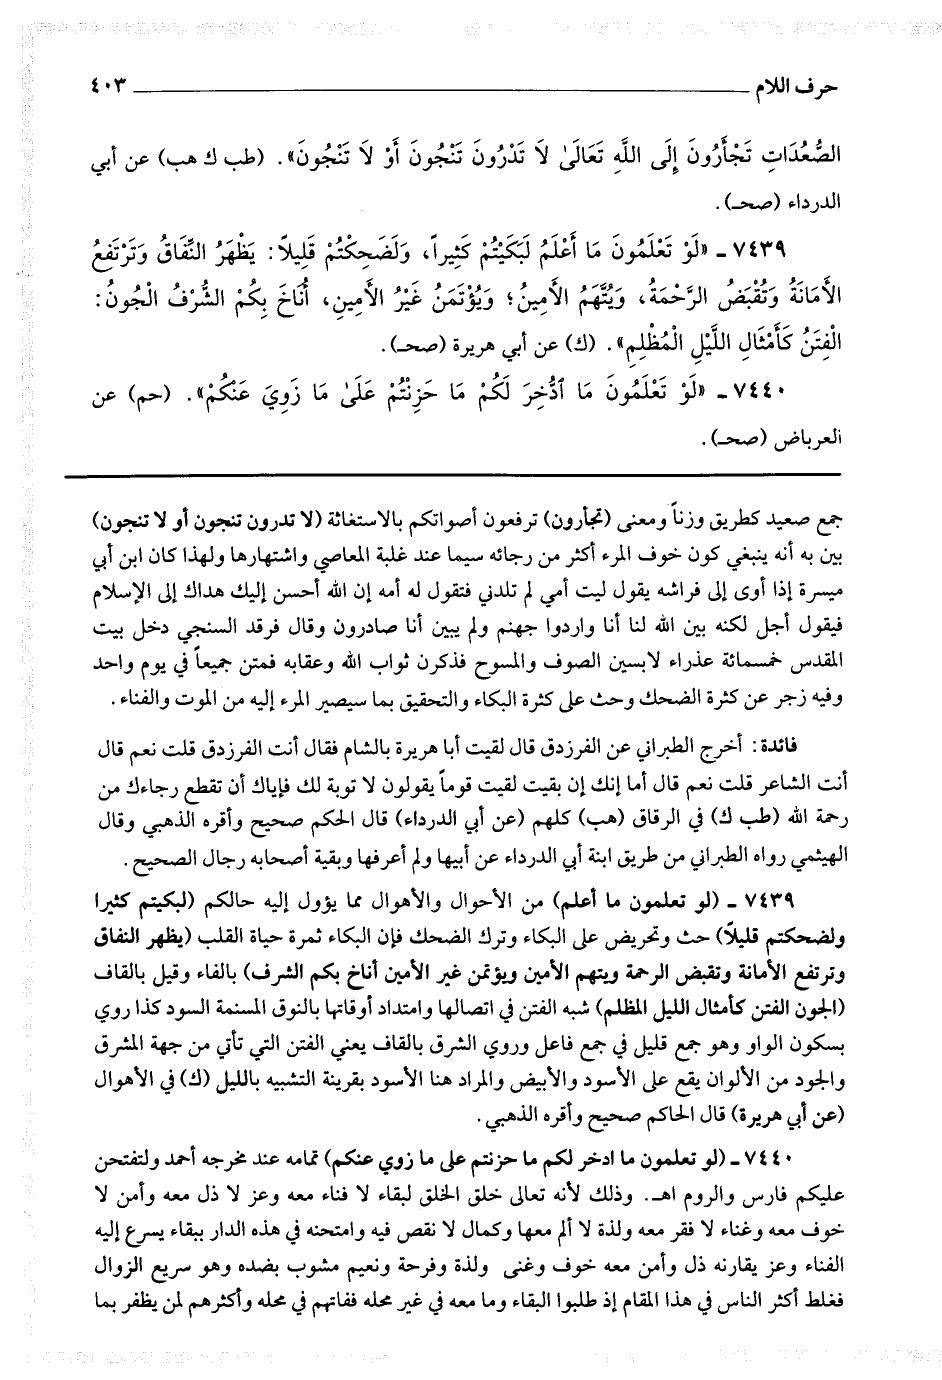 حرف اللام ــــــــــــــــــــــــــــــــــــــــ ٤٠٣
الصُّعُدَاتِ تَجْأَرُونَ إِلَى اللَّهِ تَعَالَىٰ لاَ تَدْرُونَ تَنْجُونَ أَوْ لاَ تَنْجُونَ». (طب ك هب) عن أبي
الدرداء (صحـ).
٧٤٣٩ ـ «لَوْ تَعْلَمُونَ مَا أَعْلَمُ لَبَكَيْتُمْ كَثِيراً، وَلَضَحِكْتُمْ قَلِيلاً: يَظْهَرُ النِّفَاقُ وَتَرْتَفِعُ
الأَمَانَةُ وَتُقْبَضُ الرَّحْمَةُ، وَيُتَّهَمُ الأَمِينُ؛ وَيُؤْتَمَنُ غَيْرُ الأَمِينِ، أَنَاخَ بِكُمْ الشُّرْفُ الْجُونُ:
الْفِتَنُ كَأَمْثَالِ اللَّيْلِ الْمُظْلِمِ». (ك) عن أبي هريرة (صحـ).
٧٤٤٠ ـ «لَوْ تَعْلَمُونَ مَا ٱدُّخِرَ لَكُمْ مَا حَزِنْتُمْ عَلَىٰ مَا زَوِيَ عَنْكُمْ». (حم) عن
العرباض (صحـ).
جمع صعيد كطريق وزناً ومعنى (تجأرون) ترفعون أصواتكم بالاستغاثة (لا تدرون تنجون أو لا تنجون)
بين به أنه ينبغي كون خوف المرء أكثر من رجائه سيما عند غلبة المعاصي واشتهارها ولهذا كان ابن أبي
ميسرة إذا أوى إلى فراشه يقول ليت أمي لم تلدني فتقول له أمه إن الله أحسن إليك هداك إلى الإسلام
فيقول أجل لكنه بين الله لنا أنا واردوا جهنم ولم يبين أنا صادرون وقال فرقد السنجي دخل بيت
المقدس خمسمائة عذراء لابسين الصوف والمسوح فذكرن ثواب الله وعقابه فمتن جميعاً في يوم واحد
وفيه زجر عن كثرة الضحك وحث على كثرة البكاء والتحقيق بما سيصير المرء إليه من الموت والفناء.
فائدة: أخرج الطبراني عن الفرزدق قال لقيت أبا هريرة بالشام فقال أنت الفرزدق قلت نعم قال
أنت الشاعر قلت نعم قال أما إنك إن بقيت لقيت قوماً يقولون لا توبة لك فإياك أن تقطع رجاءك من
رحمة الله (طب ك) في الرقاق (هب) كلهم (عن أبي الدرداء) قال الحكم صحيح وأقره الذهبي وقال
الهيثمي رواه الطبراني من طريق ابنة أبي الدرداء عن أبيها ولم أعرفها وبقية أصحابه رجال الصحيح.
٧٤٣٩ ـ (لو تعلمون ما أعلم) من الأحوال والأهوال مما يؤول إليه حالكم (لبكيتم كثيرا
ولضحكتم قليلاً) حث وتحريض على البكاء وترك الضحك فإن البكاء ثمرة حياة القلب (يظهر النفاق
وترتفع الأمانة وتقبض الرحمة ويتهم الأمين ويؤتمن غير الأمين أناخ بكم الشرف) بالفاء وقيل بالقاف
(الجون الفتن كأمثال الليل المظلم) شبه الفتن في اتصالها وامتداد أوقاتها بالنوق المسنمة السود كذا روي
بسكون الواو وهو جمع قليل في جمع فاعل وروي الشرق بالقاف يعني الفتن التي تأتي من جهة المشرق
والجود من الألوان يقع على الأسود والأبيض والمراد هنا الأسود بقرينة التشبيه بالليل (ك) في الأهوال
(عن أبي هريرة) قال الحاكم صحيح وأقره الذهبي.
٧٤٤٠ ـ (لو تعلمون ما ادخر لكم ما حزنتم على ما زوي عنكم) تمامه عند مخرجه أحمد ولتفتحن
عليكم فارس والروم اهـ. وذلك لأنه تعالى خلق الخلق لبقاء لا فناء معه وعز لا ذل معه وأمن لا
خوف معه وغناء لا فقر معه ولذة لا ألم معها وكمال لا نقص فيه وامتحنه في هذه الدار ببقاء يسرع إليه
الفناء وعز يقارنه ذل وأمن معه خوف وغنى ولذة وفرحة ونعيم مشوب بضده وهو سريع الزوال
فغلط أكثر الناس في هذا المقام إذ طلبوا البقاء وما معه في غير محله ففاتهم في محله وأكثرهم لمن يظفر بما